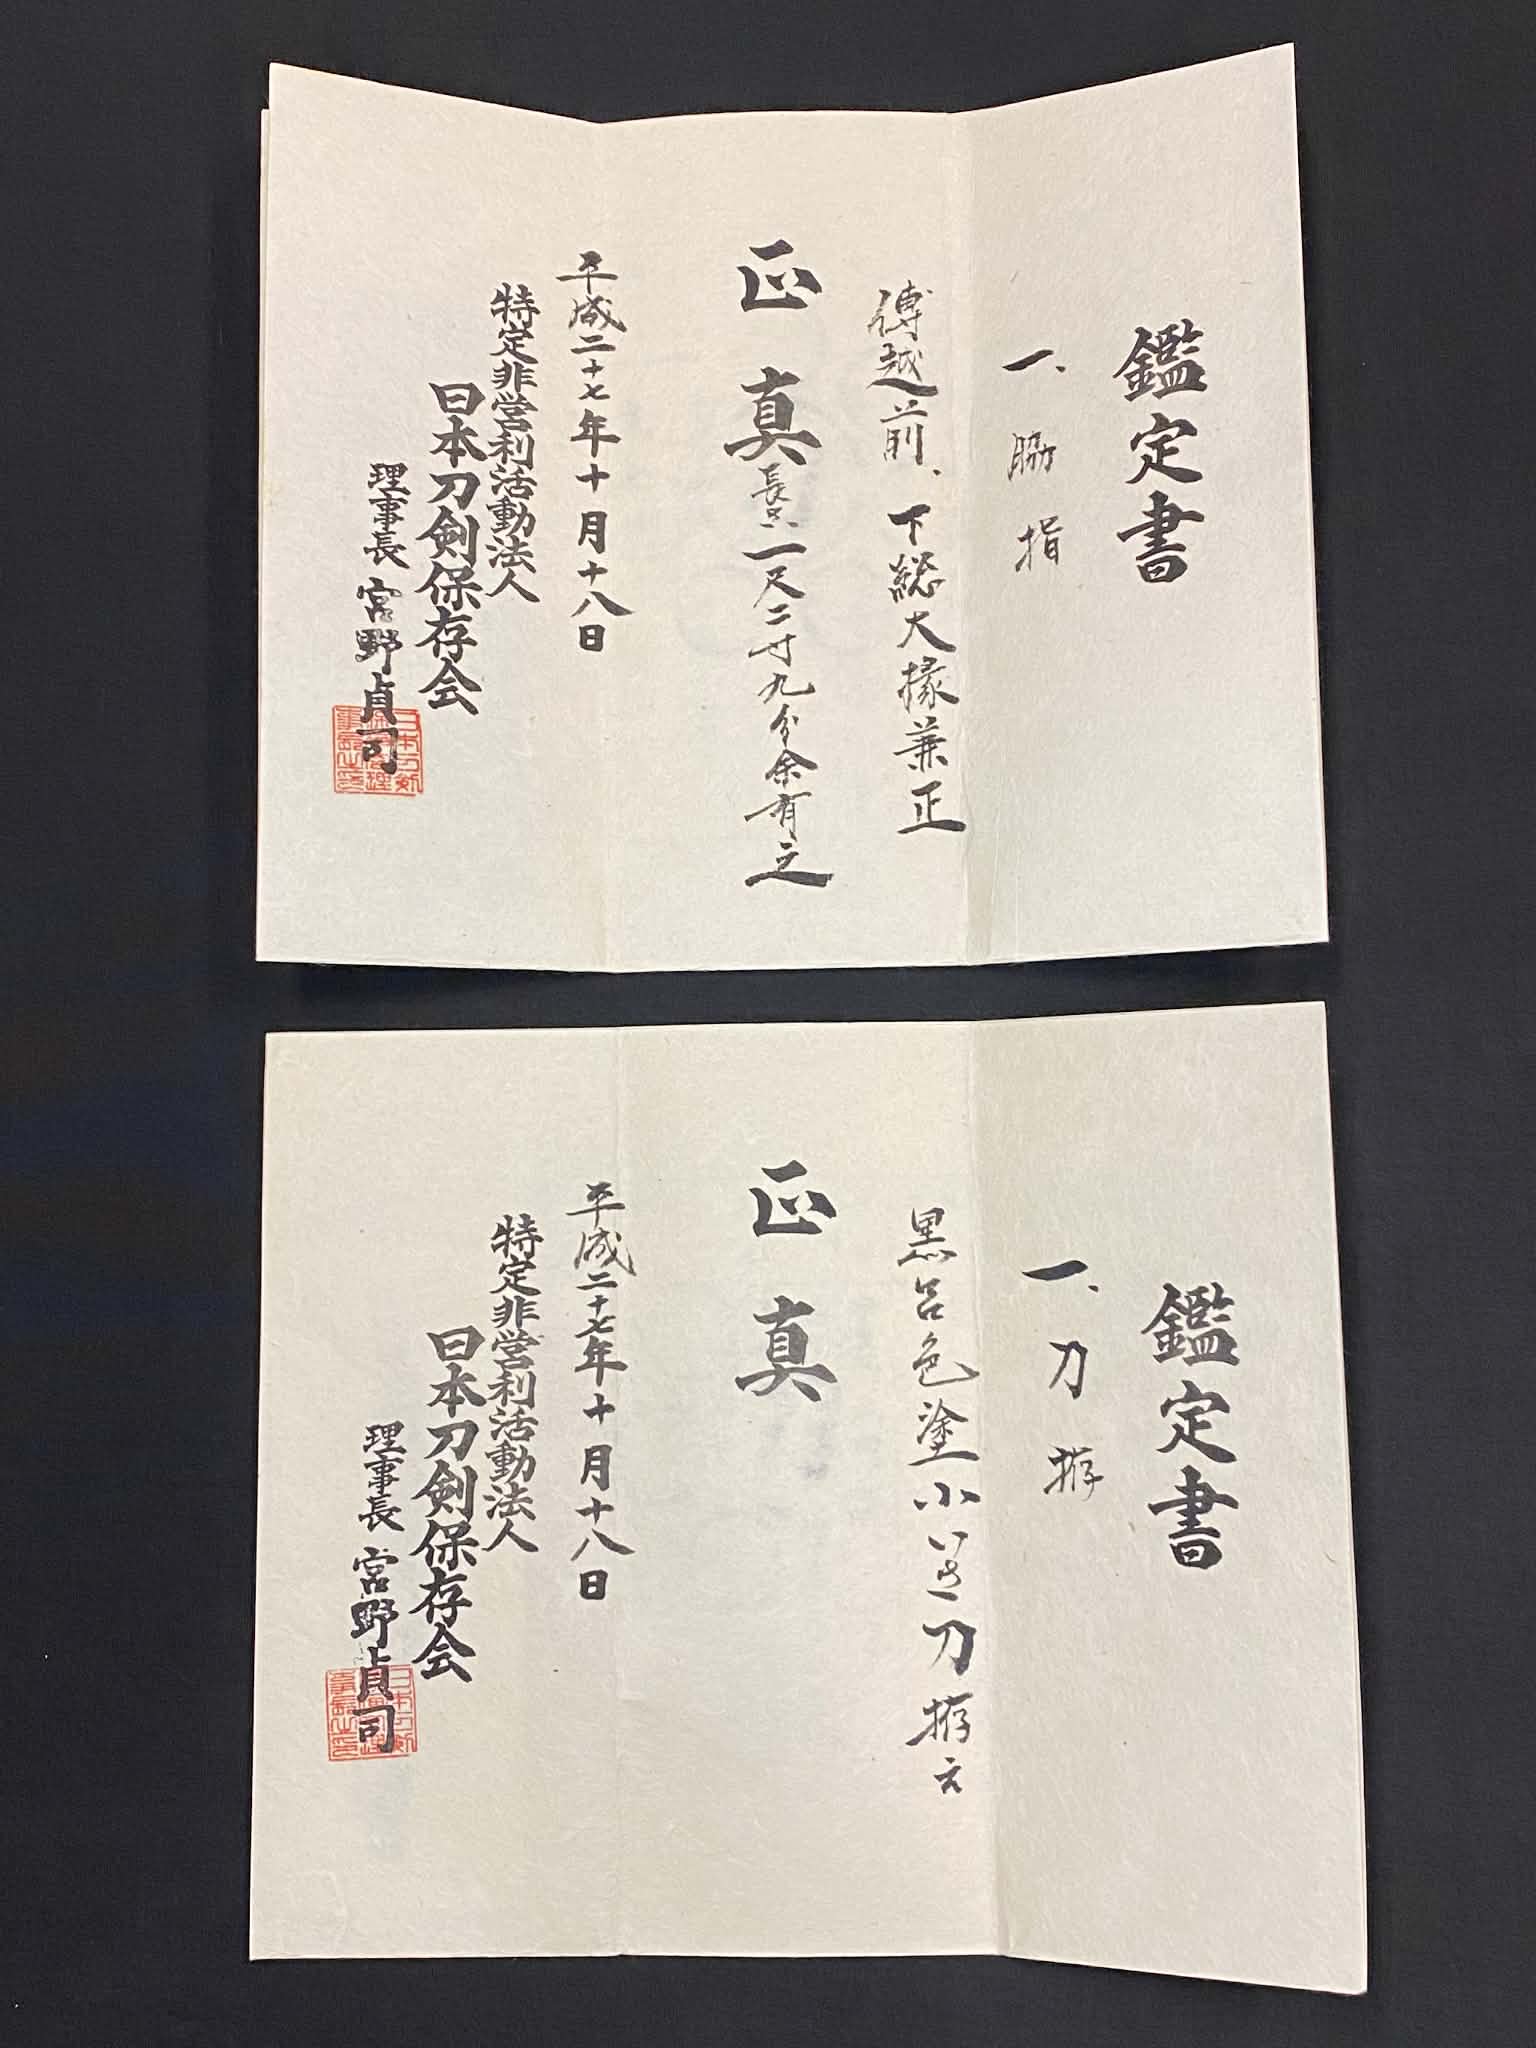 鑑定書
一、脇指
傳越前、下総大掾兼正
正真 長サ一尺二寸九分余有之
平成二十七年十月十八日
特定非営利活動法人
日本刀剣保存会
理事長 宮野貞司
鑑定書
一、刀拵
黒呂色塗小いさ刀拵え
正真
平成二十七年十月十八日
特定非営利活動法人
日本刀剣保存会
理事長 宮野貞司